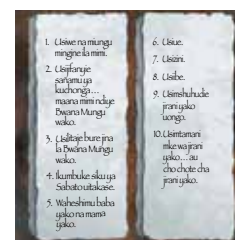 1. Usiwe na miungu
mingine ila mimi.
2. Usijifanyie
sanamu ya
kuchonga...
maana mimi ndiye
Bwana Mungu
wako.
3. Usilitaje bure jina
la Bwana Mungu
wako.
4. Ikumbuke siku ya
Sabato uitakase.
5. Waheshimu baba
yako na mama
yako.
6. Usiue.
7. Usizini.
8. Usiibe.
9. Usimshuhudie
jirani yako
uongo.
10. Usimtamani
mke wa jirani
yako... au
cho chote cha
jirani yako.